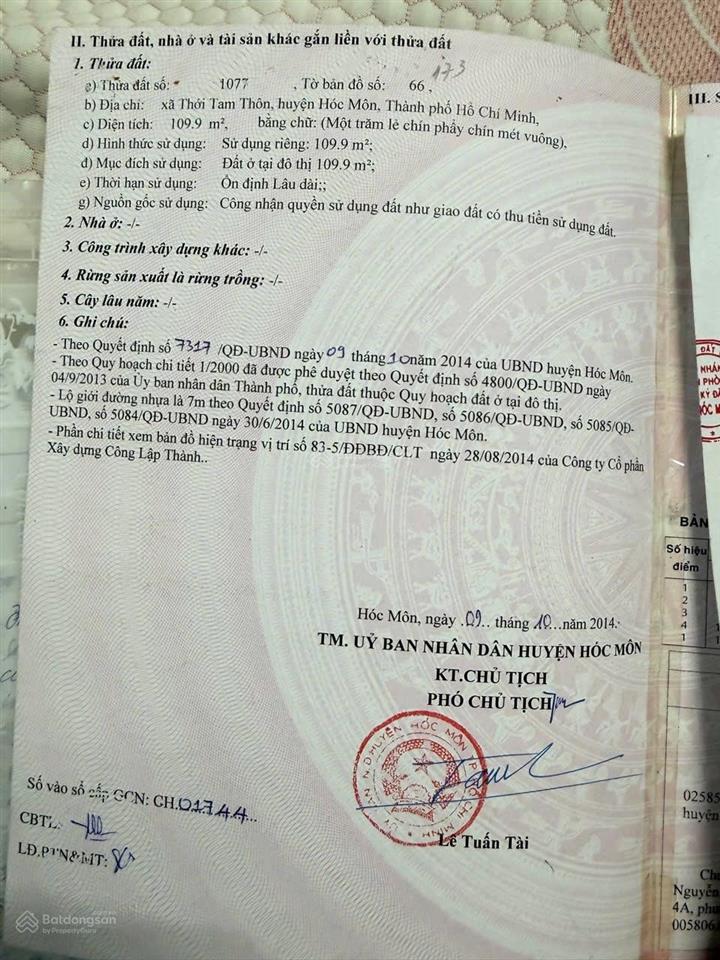 II. Thửa đất, nhà ở và tài sản khác gắn liền với thửa đất
1. Thửa đất:
173
a) Thửa đất số: 1077 , Tờ bản đồ số: 66 ,
b) Địa chỉ: xã Thới Tam Thôn, huyện Hóc Môn, Thành phố Hồ Chí Minh,
c) Diện tích: 109.9 m², bằng chữ: (Một trăm lẻ chín phẩy chín mét vuông),
d) Hình thức sử dụng: Sử dụng riêng: 109.9 m²;
đ) Mục đích sử dụng: Đất ở tại đô thị 109.9 m²;
e) Thời hạn sử dụng: Ổn định Lâu dài;;
g) Nguồn gốc sử dụng: Công nhận quyền sử dụng đất như giao đất có thu tiền sử dụng đất.
2. Nhà ở: -/-
3. Công trình xây dựng khác: -/-
4. Rừng sản xuất là rừng trồng: -/-
5. Cây lâu năm: -/-
6. Ghi chú:
- Theo Quyết định số 7317 /QĐ-UBND ngày 09 tháng 10 năm 2014 của UBND huyện Hóc Môn.
- Theo Quy hoạch chi tiết 1/2000 đã được phê duyệt theo Quyết định số 4800/QĐ-UBND ngày
04/9/2013 của Ủy ban nhân dân Thành phố, thửa đất thuộc Quy hoạch đất ở tại đô thị.
- Lộ giới đường nhựa là 7m theo Quyết định số 5087/QĐ-UBND, số 5086/QĐ-UBND, số 5085/QĐ-
UBND, số 5084/QĐ-UBND ngày 30/6/2014 của UBND huyện Hóc Môn.
- Phần chi tiết xem bản đồ hiện trạng vị trí số 83-5/ĐĐBĐ/CLT ngày 28/08/2014 của Công ty Cổ phần
Xây dựng Công Lập Thành..
Hóc Môn, ngày .09.. tháng .10...năm 2014.
TM. UỶ BAN NHÂN DÂN HUYỆN HÓC MÔN
KT.CHỦ TỊCH
PHÓ CHỦ TỊCH
Lê Tuấn Tài
Số vào sổ cấp GCN: CH.01744...
CBTL:
LĐ.PTN&MT:
Batdongsan
by PropertyGuru
III. S
BẢN
Số hiệu
điểm
1
2
3
4
1
02585
huyện
Ch
Nguyễn
4A, phư
005806